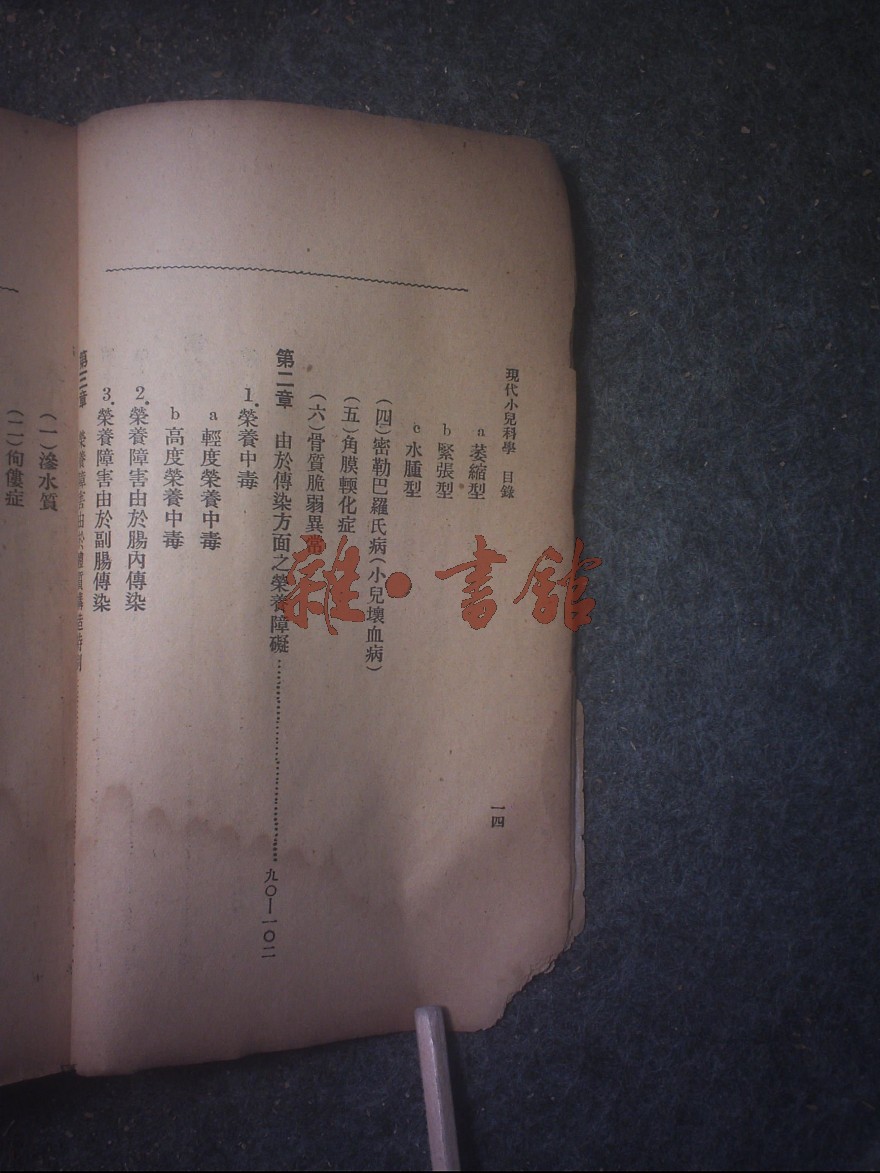 現代小兒科學　目錄
一四
a 萎縮型
b 緊張型
c 水腫型
(四)密勒巴羅氏病(小兒壞血病)
(五)角膜輭化症
(六)骨質脆弱異常
第二章　由於傳染方面之榮養障礙……九〇—一〇二
1. 榮養中毒
a 輕度榮養中毒
b 高度榮養中毒
2. 榮養障害由於腸內傳染
3. 榮養障害由於副腸傳染
第三章　榮養障害由於體質構造特別
(一)滲水質
(二)佝僂症
雜·書館